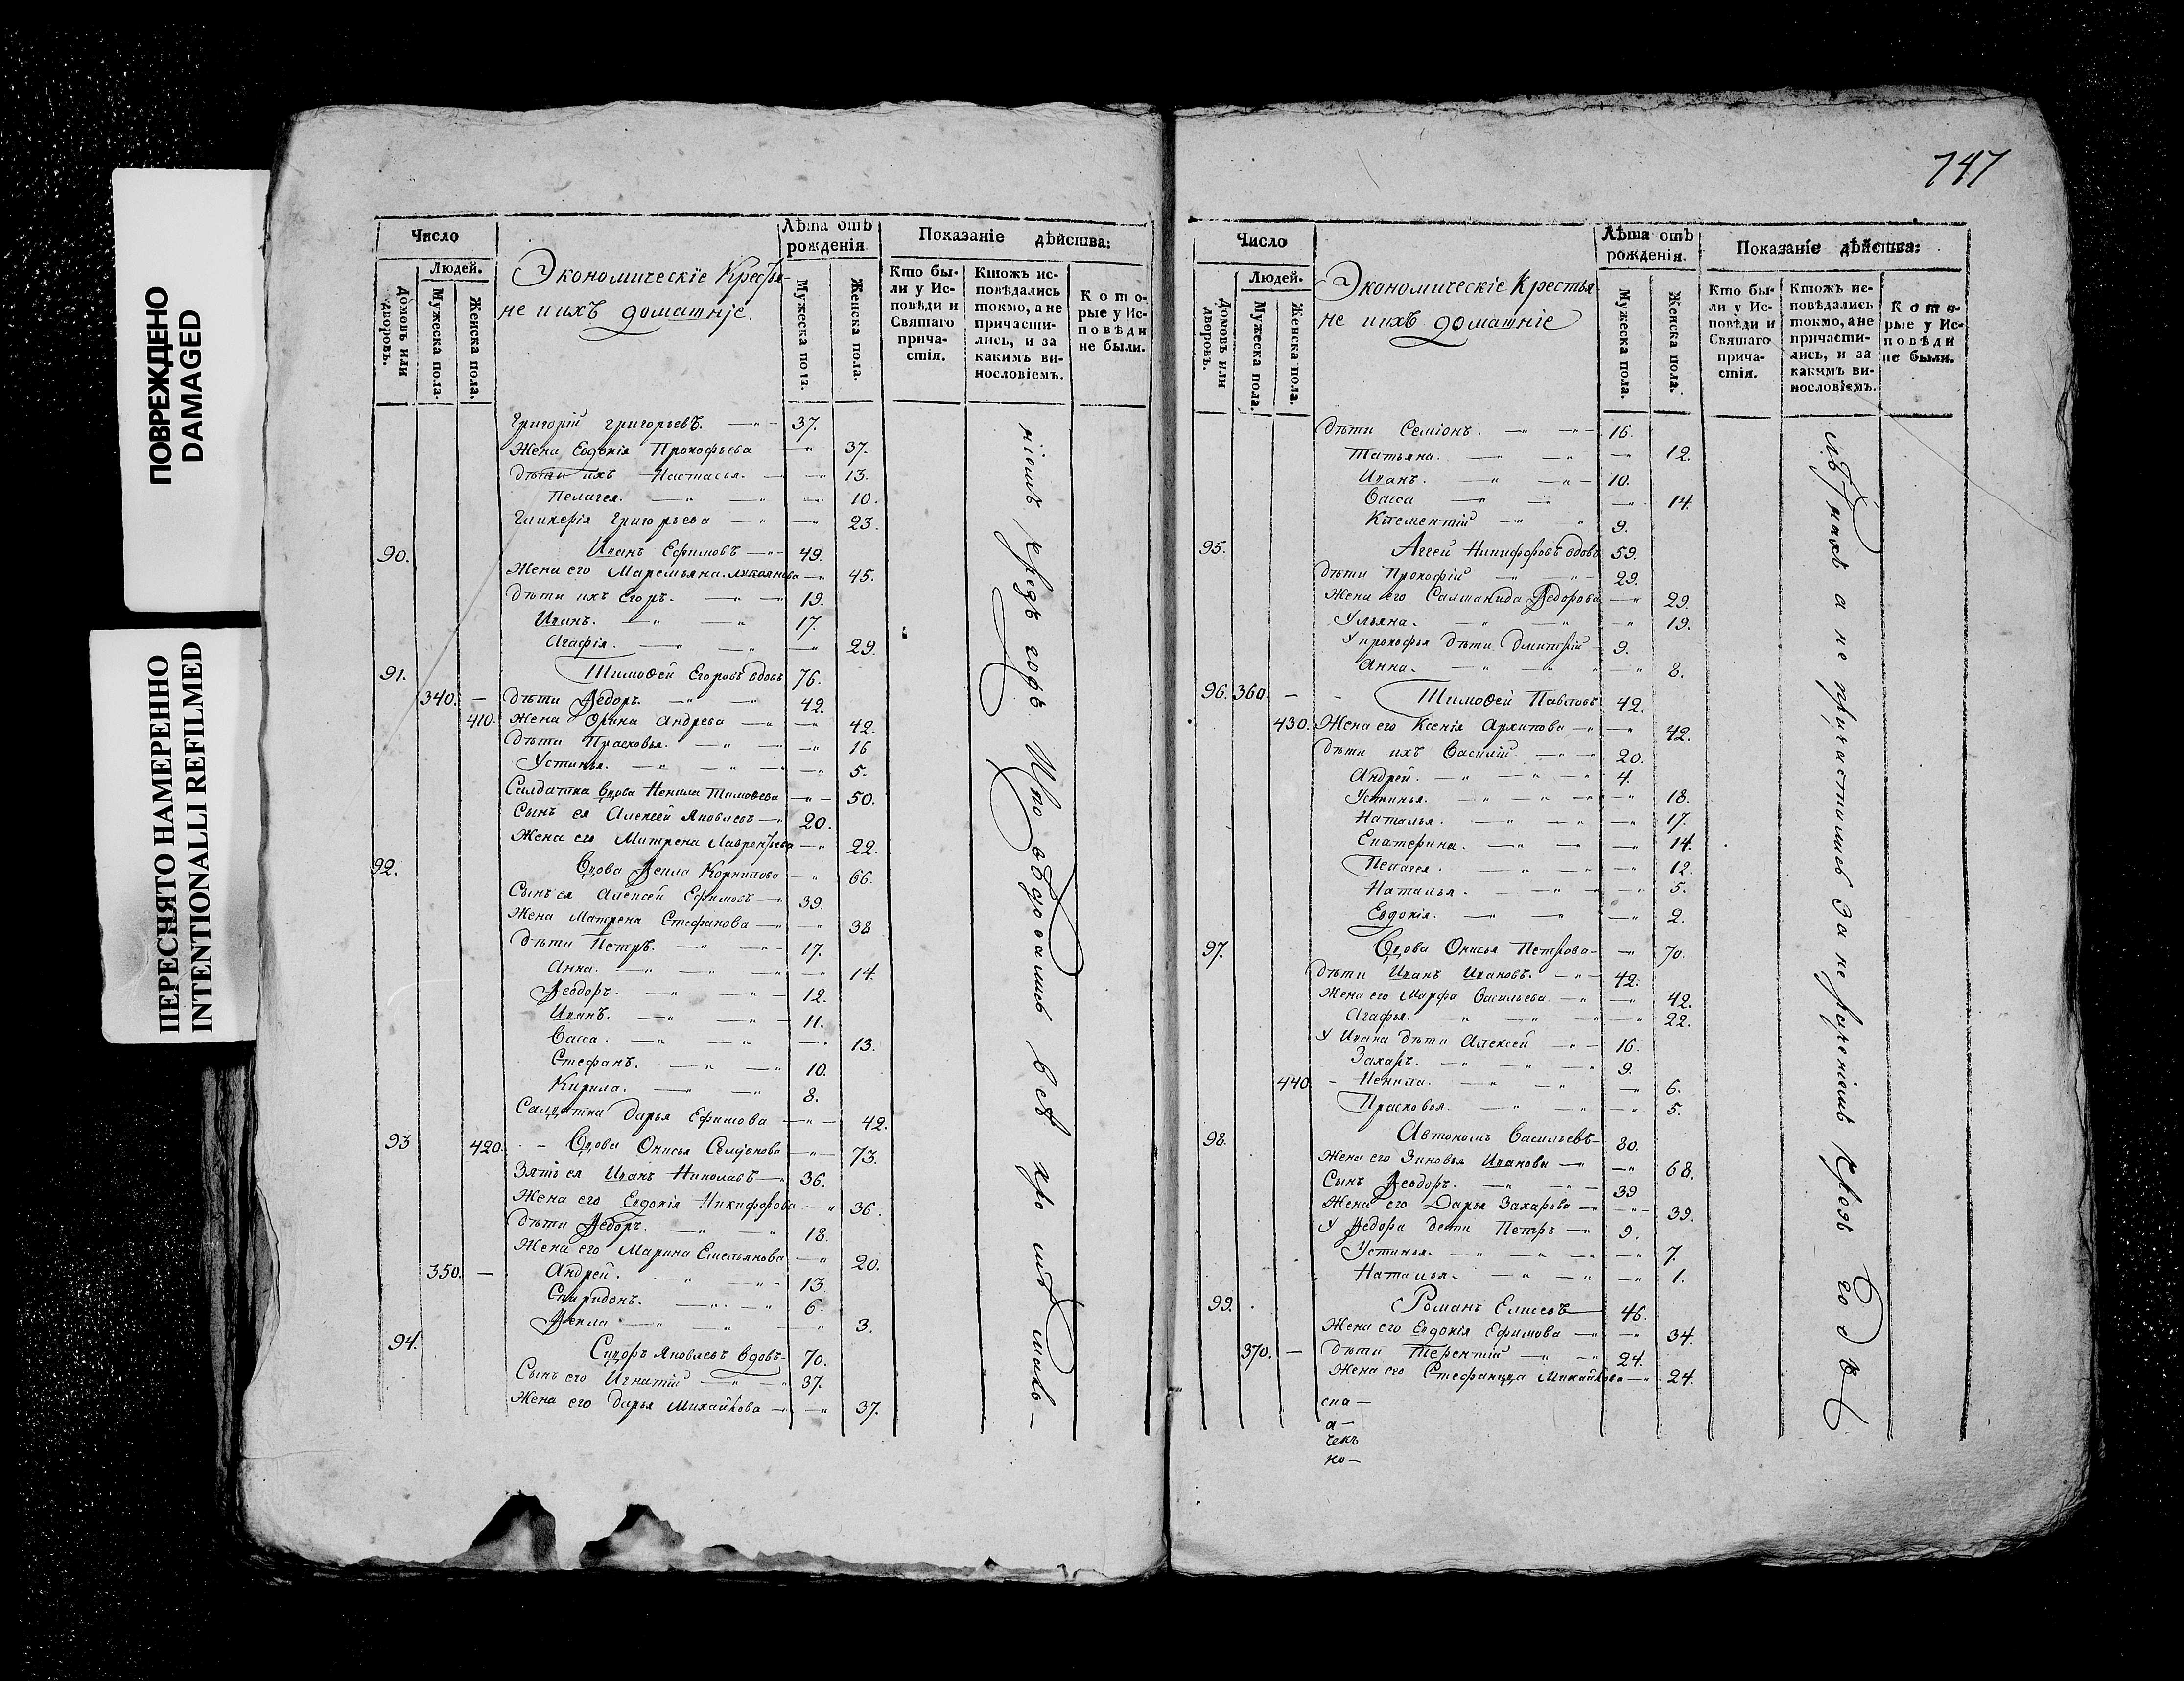 ПОВРЕЖДЕНО
DAMAGED
ПЕРЕСНЯТО НАМЕРЕННО
INTENTIONALLI REFILMED
Число
Людей.
Домовъ или дворовъ.
Мужеска пола.
Женска пола.
Экономическіе Крестья-
не и ихъ домашніе.
Лѣта отъ рожденія
Мужеска по 12.
Женска пола.
Показаніе дѣйства:
Кто бы-
ли у Ис-
повѣди и
Святаго
прича-
стія.
Ктожъ ис-
повѣдались
токмо, а не
причасти-
лись, и за
какимъ ви-
нословіемъ.
К о т о-
рые у Ис-
п о в ѣ д и
не были.
Григорій Григорьевъ. 37.
Жена Евдокія Прокофьева 37.
Дѣти ихъ Настасья. 13.
Пелагея. 10.
Гликерія Григорьева 23.
90. Иванъ Ефимовъ 49.
Жена его Маремьяна 45.
Дѣти ихъ Егоръ. 19.
Иванъ. 17.
Агафія. 29.
91. Тимоѳей Егоровъ вдовъ 76.
340. Дѣти Ѳедоръ. 42.
410. Жена Орина Андрева 42.
Дѣти Прасковья. 16
Устинья. 5.
Салдатка вдова Ненила Тимоѳева 50.
Сынъ ея Алексей Яковлевъ 20.
Жена его Матрена Лаврентьева 22.
92. Вдова Ѳекла Корнилова 66.
Сынъ ея Алексей Ефимовъ 39.
Жена Матрена Стефанова 38
Дѣти Петръ. 17.
Анна. 14.
Ѳеодоръ. 12.
Иванъ. 11.
Васса. 13.
Стефанъ. 10.
Кирила. 8.
Салдатка Дарья Ефимова 42.
93 420. Вдова Онисья Семіонова 73.
Зять ея Иванъ Николавъ 36.
Жена его Евдокія Никифорова 36.
Дѣти Ѳедоръ. 18.
Жена его Марина Емельянова 20.
350. Андрей. 13.
Спиридонъ. 6.
Ѳекла 3.
94. Сидоръ Яковлевъ вдовъ 70.
Сынъ его Игнатій 37.
Жена его Дарья Михайлова 37.
747
Число
Людей.
Домовъ или дворовъ.
Мужеска пола.
Женска пола.
Экономическіе Крестья
не и ихъ домашніе
Лѣта отъ рожденія.
Мужеска пола.
Женска пола.
Показаніе дѣйства:
Кто бы-
ли у Ис-
повѣди и
Святаго
прича-
стія.
Ктожъ ис-
повѣдались
токмо, а не
причасти-
лись, и за
какимъ ви-
нословіемъ.
К о т о-
рые у Ис-
п о в ѣ д и
не были.
Дѣти Семіонъ. 16.
Татьяна. 12.
Иванъ. 10.
Васса 14.
Клементій 9.
95. Аггей Никифоровъ вдовъ 59.
Дѣти Прокофій 29.
Жена его Саламанида Ѳедорова 29.
Ульяна. 19.
У Прокофья дѣти Дмитрій 9.
Анна. 8.
96. 360. Тимоѳей Павловъ 42.
430. Жена его Ксенія Архипова 42.
Дѣти ихъ Василій 20.
Андрей. 4.
Устинья. 18.
Наталья. 17.
Екатерина. 14.
Пелагея. 12.
Наталья. 5.
Евдокія. 2.
97. Вдова Онисья Петрова 70.
Дѣти Иванъ Ивановъ. 42.
Жена его Марфа Васильева 42.
Агафья. 22.
У Ивана дѣти Алексей 16.
Захаръ. 9.
440 Ненила. 6.
Прасковья. 5.
98. Автономъ Васильевъ 80.
Жена его Зиновья Иванова 68.
Сынъ Ѳеодоръ. 39
Жена его Дарья Захарова 39.
У Ѳедора дети Петръ 9.
Устинья. 7.
Наталья. 1.
99. Романъ Елисевъ 46.
Жена его Евдокія Ефимова 34.
370. Дѣти Терентій 24.
Жена его Стефанида Михайлова 24.
ска —
а —
чекъ
ко —